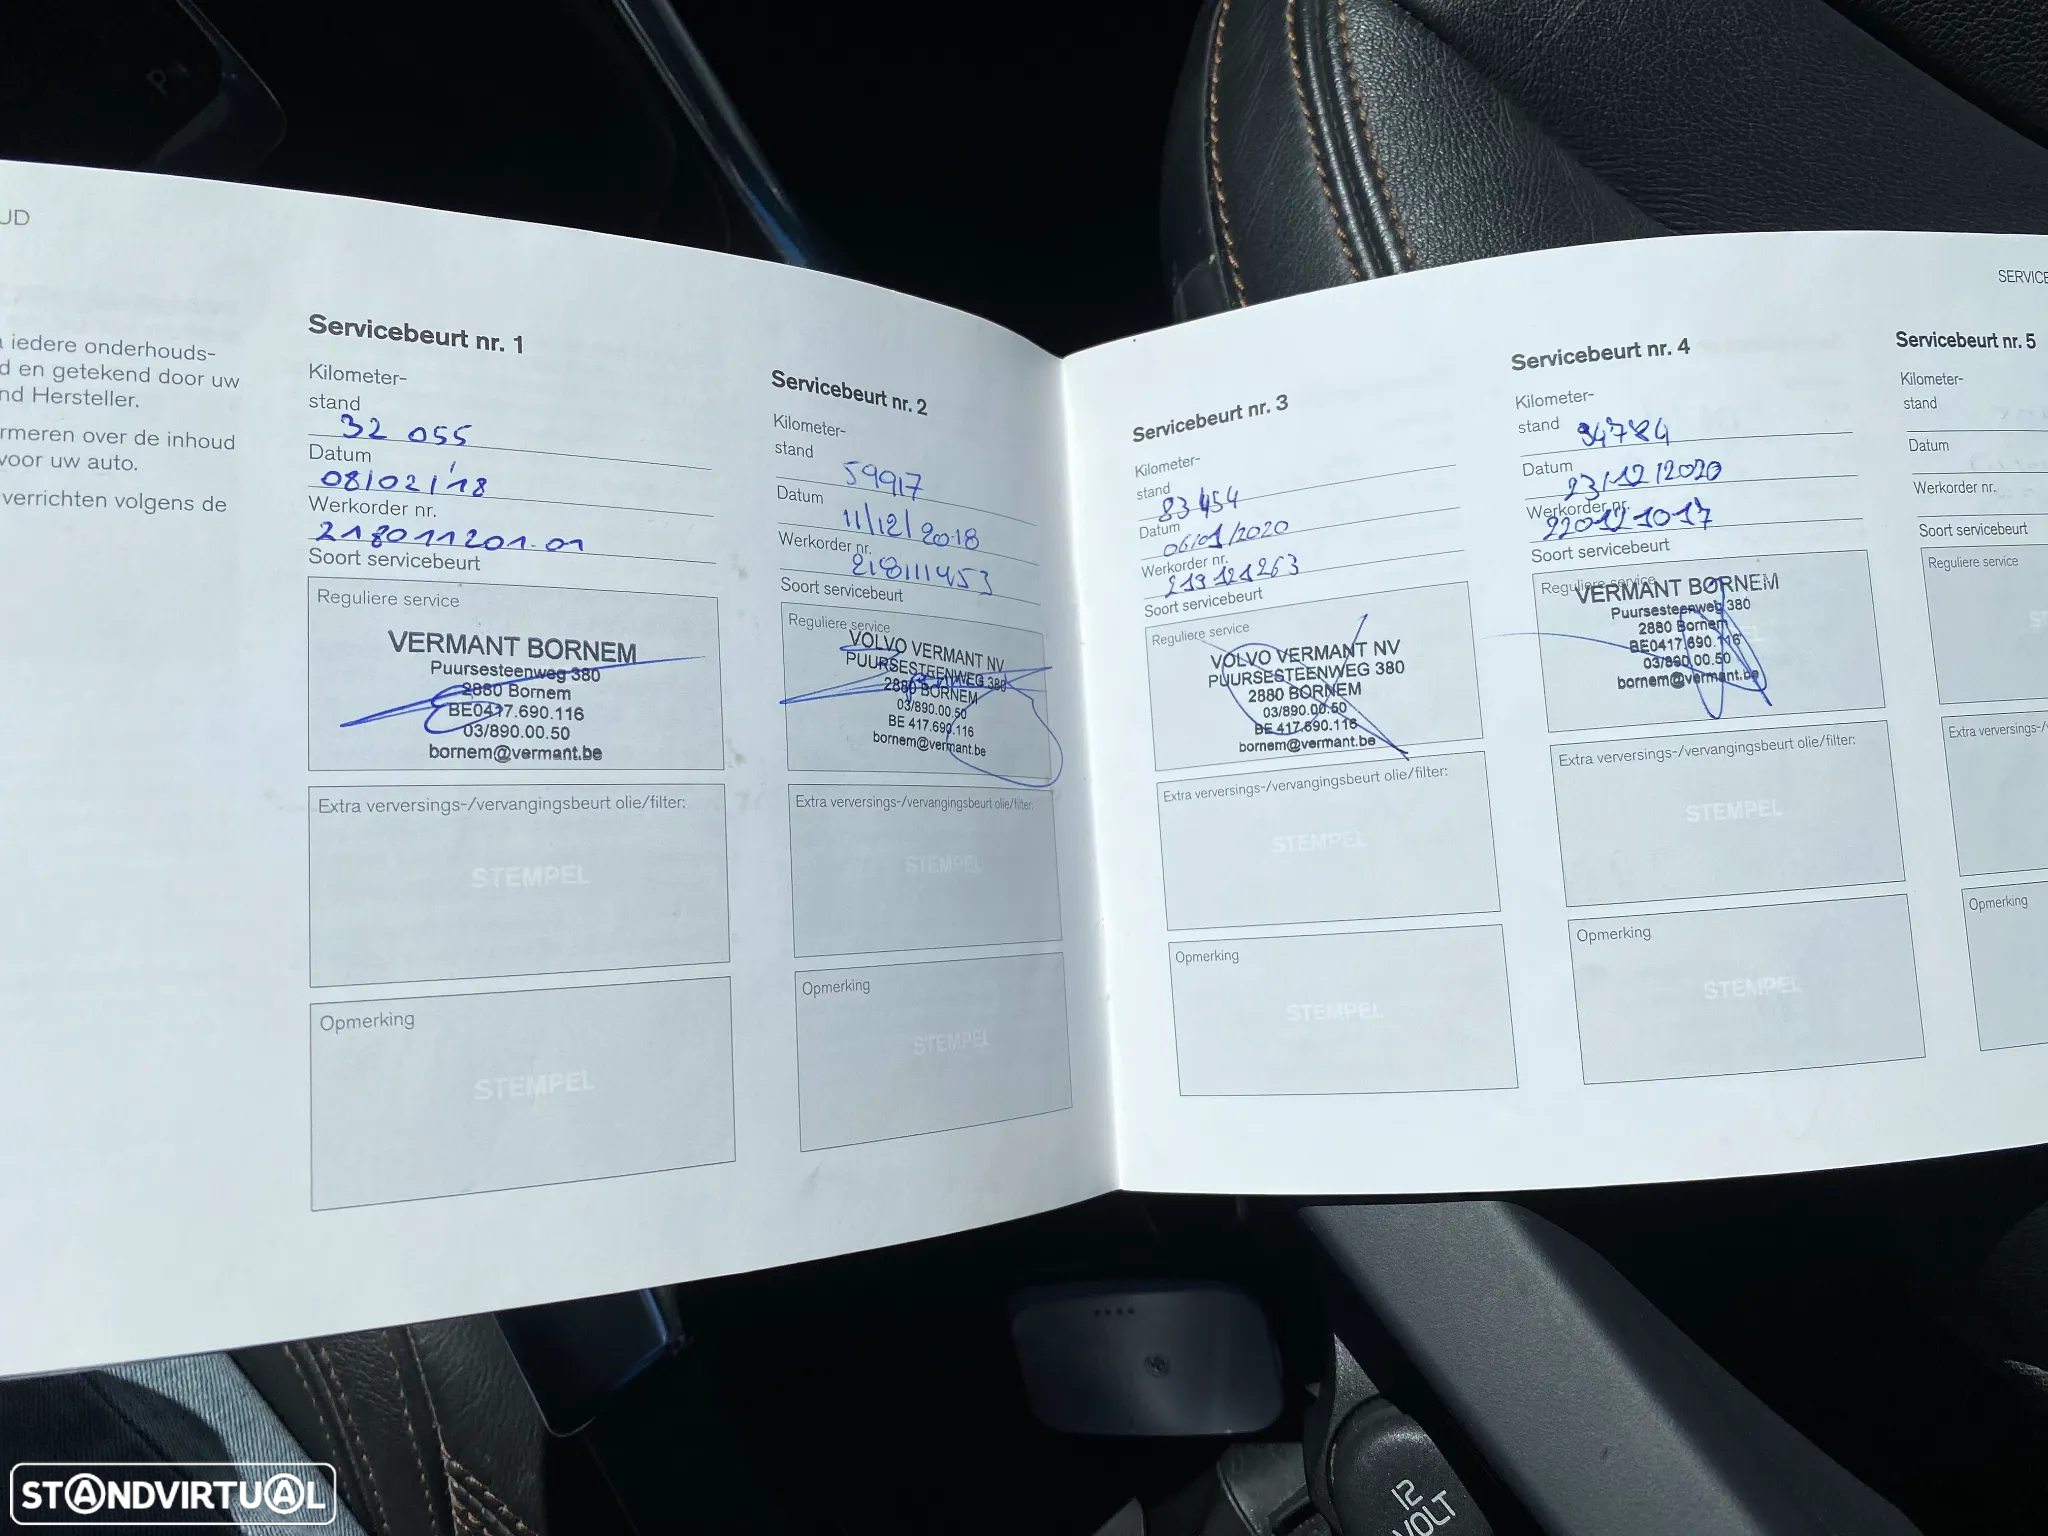 UD
iedere onderhouds-
d en getekend door uw
nd Hersteller.
rmeren over de inhoud
voor uw auto.
verrichten volgens de
Servicebeurt nr. 1
Kilometer-
stand
32 055
Datum
08/02/18
Werkorder nr.
218011201.01
Soort servicebeurt
Reguliere service
VERMANT BORNEM
Puursesteenweg 380
2880 Bornem
BE0417.690.116
03/890.00.50
bornem@vermant.be
Extra verversings-/vervangingsbeurt olie/filter:
STEMPEL
Opmerking
STEMPEL
Servicebeurt nr. 2
Kilometer-
stand
59917
Datum
11/12/2018
Werkorder nr.
218111453
Soort servicebeurt
Reguliere service
VOLVO VERMANT NV
PUURSESTEENWEG 380
2880 BORNEM
03/890.00.50
BE 417.690.116
bornem@vermant.be
Extra verversings-/vervangingsbeurt olie/filter:
STEMPEL
Opmerking
STEMPEL
SERVICE
Servicebeurt nr. 3
Kilometer-
stand
83454
Datum
06/01/2020
Werkorder nr.
219121263
Soort servicebeurt
Reguliere service
VOLVO VERMANT NV
PUURSESTEENWEG 380
2880 BORNEM
03/890.00.50
BE 417.690.116
bornem@vermant.be
Extra verversings-/vervangingsbeurt olie/filter:
STEMPEL
Opmerking
STEMPEL
Servicebeurt nr. 4
Kilometer-
stand
94784
Datum
23/12/2020
Werkorder nr.
Soort servicebeurt
Reguliere service
VERMANT BORNEM
Puursesteenweg 380
2880 Bornem
BE0417.690.116
03/890.00.50
bornem@vermant.be
Extra verversings-/vervangingsbeurt olie/filter:
STEMPEL
Opmerking
STEMPEL
Servicebeurt nr. 5
Kilometer-
stand
Datum
Werkorder nr.
Soort servicebeurt
Reguliere service
ST
Extra verversings-/
Opmerking
12
VOLT
STANDVIRTUAL